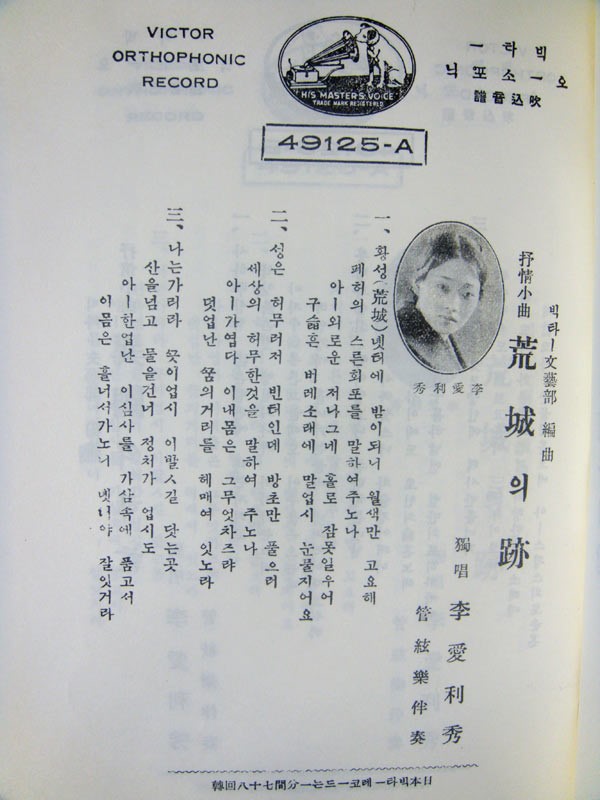 VICTOR
ORTHOPHONIC
RECORD
HIS MASTER'S VOICE
TRADE MARK REGISTERED
빅타ー
오ー소포닉
吹込音譜
49125-A
빅타ー文藝部 編曲
抒情小曲 荒城의跡
獨唱 李愛利秀
管絃樂伴奏
李愛利秀
一、황성(荒城)녯터에 밤이되니 월색만 고요해
폐허의 스른회포를 말하여주노나
아ー외로운 저나그네 홀로 잠못일우어
구슯흔 버레소래에 말업시 눈물지어요
二、성은 허무러저 빈터인데 방초만 풀으러
세상의 허무한것을 말하여 주노나
아ー가엽다 이내몸은 그무엇차즈랴
덧업난 ᄭᅮᆷ의거리를 헤매여 잇노라
三、나는가리라 ᄭᅳᆺ이업시 이발ㅅ길 닷는곳
산을넘고 물을건너 정처가 업시도
아ー한업난 이심사를 가삼속에 품고서
이몸은 흘너서가노니 녯터야 잘잇거라
日本빅타ー레코ー드는一分間七十八回轉